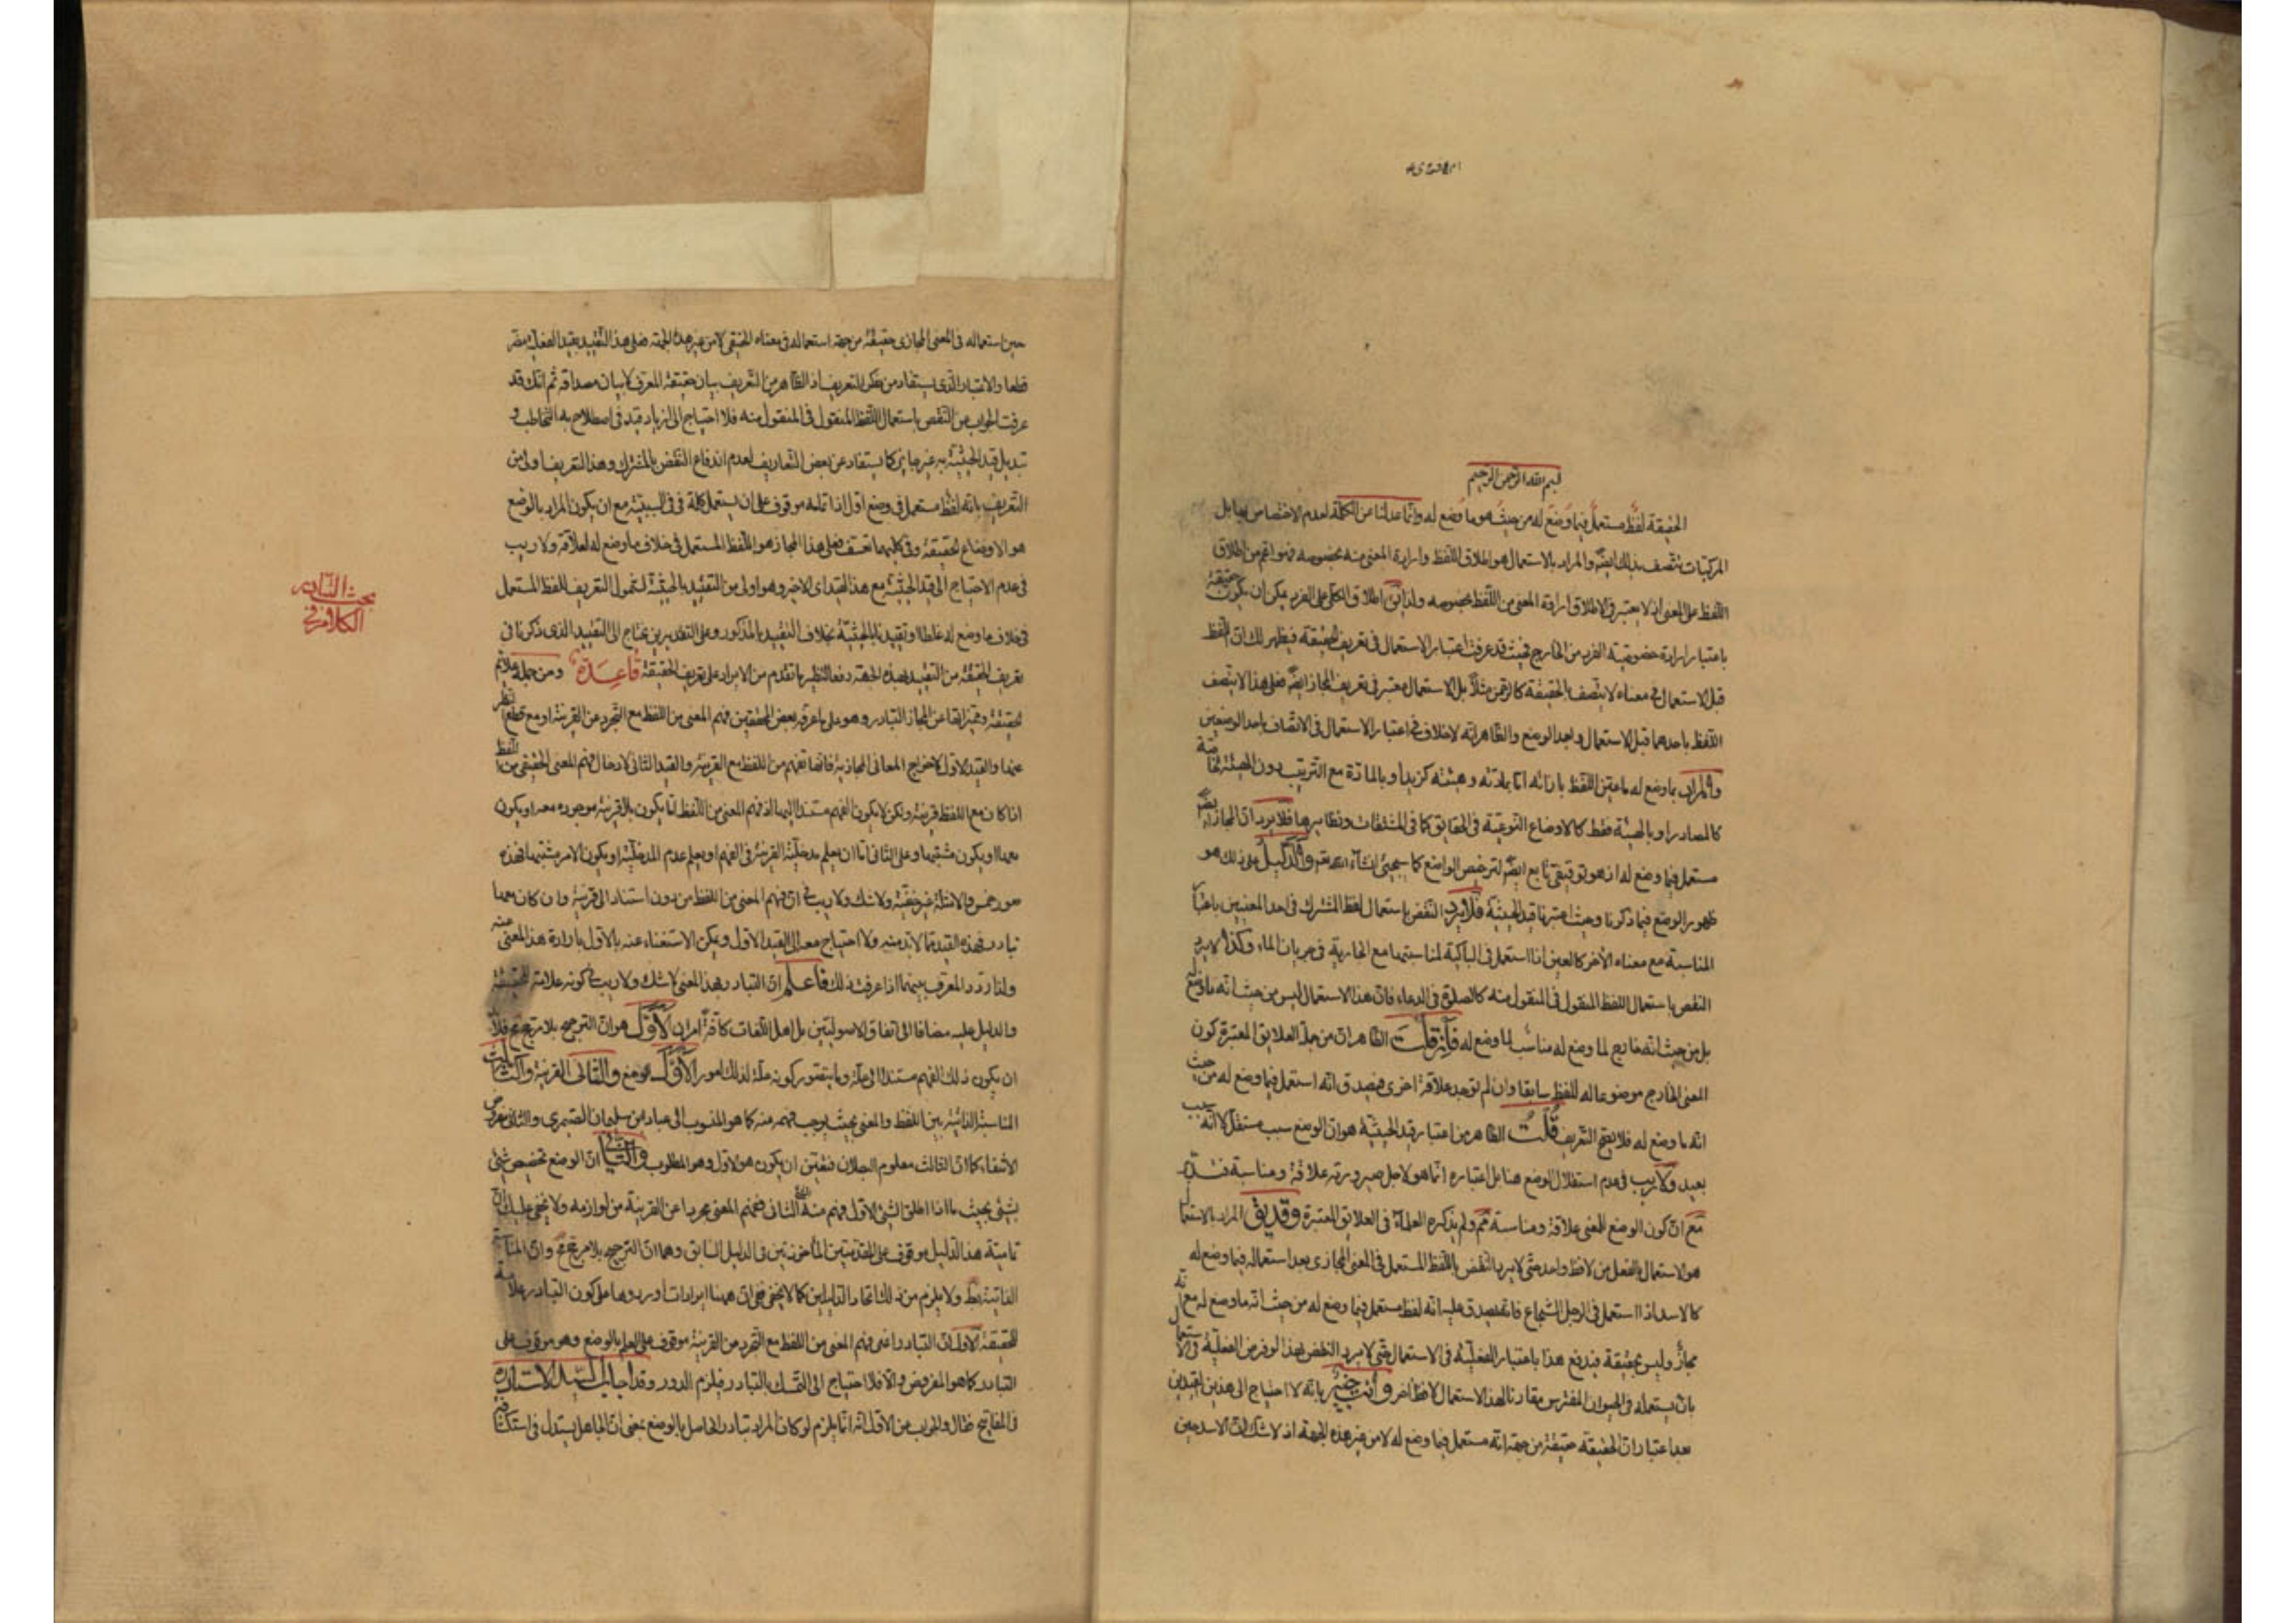 بسم الله الرحمن الرحيم
الحقيقة لفظ مستعمل فيما وضع له من حيث هو ما وضع له وانما عدلنا عن الكلمة لعدم الاختصاص بها بل
المركبات يتصف بذلك ايضا والمراد بالاستعمال هو اطلاق اللفظ وارادة المعنى منه بخصوصه فهو اتم من اطلاق
اللفظ على المعنى اذ لا يعتبر في الاطلاق ارادة المعنى من اللفظ بخصوصه ولذا ان اطلاق الكلي على الفرد يمكن ان يكون حقيقة
باعتبار ارادة خصوصية الفرد من الخارج فحيث قد عرفت اعتبار الاستعمال في تعريف الحقيقة فيظهر لك ان اللفظ
قبل الاستعمال في معناه لا يتصف بالحقيقة كالرحمن مثلا بل الاستعمال معتبر في تعريف المجاز ايضا فعلى هذا لا يتصف
اللفظ باحدهما قبل الاستعمال وبعد الوضع والظاهر انه لا خلاف في اعتبار الاستعمال في الاتصاف باحد الوصفين
والمراد بما وضع له ما عين اللفظ بازائه اما بمادته وهيئته كزيد او بالمادة مع الترتيب دون الهيئة
كالمصادر او بالهيئة فقط كالاوضاع النوعية في الحقايق كما في المشتقات ونظايرها فلا يرد ان المجاز ايضا
مستعمل فيما وضع له اذ هو توقيفي تابع ايضا لترخيص الواضع كما سيجئ انشاء الله تعالى والدليل على ذلك هو
ظهور الوضع فيما ذكرنا وحيث اعتبرنا قيد الحيثية فلا يرد النقض باستعمال لفظ المشترك في احد المعنيين باعتبار
المناسبة مع معناه الاخر كالعين اذا استعمل في الباكية لمناسبتها مع الجارية في جريان الماء وكذا لا يرد
النقض باستعمال اللفظ المنقول في المنقول منه كالصلوة في الدعاء فان هذا الاستعمال ليس من حيث انه ما وضع له
بل من حيث انه خارج لما وضع له مناسب لما وضع له فان قلت الظاهر ان من جملة العلايق المعتبرة كون
المعنى الخارج موضوعا له للفظ سابقا وان لم توجد علاقة اخرى فيصدق انه استعمل فيما وضع له من حيث
انه ما وضع له فلا يصح التعريف قلت الظاهر من اعتبار قيد الحيثية هو ان الوضع سبب مستقل لا انه سبب
بعيد ولا ريب في عدم استقلال الوضع هنا بل اعتباره انما هو لاجل صيرورته علاقة ومناسبة
مع ان كون الوضع للمعنى علاقة ومناسبة ولم يذكره العلماء في العلايق المعتبرة وقد يق المراد بالاستعمال
هو الاستعمال بالفعل من لافظ واحد حتى لا يرد النقض باللفظ المستعمل في المعنى المجازي بعد استعماله فيما وضع له
كالاسد اذا استعمل في الرجل الشجاع فانه يصدق عليه انه لفظ مستعمل فيما وضع له من حيث انه ما وضع له مع انه
مجاز وليس بحقيقة فيدفع هذا باعتبار الفعلية في الاستعمال حتى لا يرد النقض بهذا لو فرض الفعلية في الاستعمال
بان يستعمله في الحيوان المفترس مقارنا لهذا الاستعمال لافظ اخر وانت خبير بانه لا احتياج الى هذين القيدين
بعد اعتبار ان الحقيقة حقيقة من جهة انه مستعمل فيما وضع له لا من غير هذه الجهة اذ لا شك ان الاسد حين
حين استعماله في المعنى المجازي حقيقة من جهة استعماله في معناه الحقيقي لا من غير هذه الجهة فعلى هذا التقييد بقيد الفعلية مضر
قطعا والاتصاف الذي يستفاد من ظهر التعريف اذ الظاهر من التعريف بيان حقيقة المعرف لا بيان مصداقه ثم انك قد
عرفت الجواب عن النقض باستعمال اللفظ المنقول في المنقول منه فلا احتياج الى ازدياد قيد في اصطلاح به التخاطب و
تبديل قيد الحيثية به غير جايز كما يستفاد عن بعض التعاريف لعدم اندفاع النقض بالمشترك وهذا التعريف اولى من
التعريف بانه لفظ مستعمل في وضع اول اذ اتمامه موقوف على ان يستعمل كلمة في في السببية مع ان يكون المراد بالوضع
هو الاوضاع الحقيقة وفي كليهما تعسف فعلى هذا المجاز هو اللفظ المستعمل في خلاف ما وضع له لعلاقة ولا ريب
في عدم الاحتياج الى قيد الحيثية مع هذا القيد اى الاخير وهو اولى من التقييد بالحيثية لشمول التعريف للفظ المستعمل
في خلاف ما وضع له غلطا وتقييدنا بالحيثية بخلاف التقييد بالمذكور وعلى التقديرين يحتاج الى التقييد الذي ذكرنا في
تعريف الحقيقة من التقييد بهذه الجهة دفعا لنظير ما تقدم من الايراد على تعريف الحقيقة قاعدة ومن جملة علائم
الحقيقة ومميزاتها عن المجاز التبادر وهو على ما عرفه بعض المحققين فهم المعنى من اللفظ مع التجرد عن القرينة او مع قطع النظر
عنها والقيد الاول لاخراج المعاني المجازية فانها تفهم من اللفظ مع القرينة والقيد الثاني لادخال فهم المعنى الحقيقي من اللفظ
اذا كان مع اللفظ قرينة ولكن لا يكون الفهم مستندا اليها اذ فهم المعنى من اللفظ اما يكون بلا قرينة موجودة معه او يكون
معها او يكون مشتبها وعلى الثاني اما ان يعلم مدخلية القرينة في الفهم او يعلم عدم المدخلية او يكون الامر مشتبها فهذه
صور خمس والامثلة غير خفية ولا شك ولا ريب في ان فهم المعنى من اللفظ من دون استناد الى قرينة وان كان معها
تبادر فهذه القيد مما لا بد منه ولا احتياج معه الى القيد الاول ويمكن الاستغناء عنه بالاول بارادة هذا المعنى منه
ولذا ردد المعرف بينهما اذا عرفت ذلك فاعلم ان التبادر بهذا المعنى لا شك ولا ريب في كونه علامة الحقيقة
والدليل عليه مضافا الى اتفاق الاصوليين بل اهل اللغات كافة امران الاول هو ان الترجيح بلا مرجح
ان يكون ذلك الفهم مستندا الى علة وما يتصور كونه علة لذلك امور الاول الوضع والثاني القرينة والثالث
المناسبة الذاتية بين اللفظ والمعنى بحيث يوجب فهمه منه كما هو المنسوب الى عباد بن سليمان الصيمري والثاني مفروض
الانتفاء كما ان الثالث معلوم البطلان فتعين ان يكون هو الاول وهو المطلوب والثاني ان الوضع تخصيص شئ
بشئ بحيث ما اذا اطلق الشئ الاول فهم منه الشئ الثاني ففهم المعنى مجردا عن القرينة من لوازمه ولا يخفى عليك ان
تمامية هذا الدليل موقوف على المقدمتين المأخوذتين في الدليل السابق وهما ان الترجيح بلا مرجح وان المناسبة
الذاتية بط ولا يلزم من ذلك اتحاد الدليلين كما لا يخفى ثم ان ههنا ايرادات اوردوها على كون التبادر علامة
للحقيقة الاول ان التبادر اعنى فهم المعنى من اللفظ مع التجرد من القرينة موقوف على العلم بالوضع وهو موقوف على
التبادر كما هو المفروض والا فلا احتياج الى التمسك بالتبادر فيلزم الدور وقد اجاب السيد الاستاد
في المفاتيح فقال والجواب عن الاول انه انما يلزم لو كان المراد تبادر الحاصل بالوضع بمعنى ان الجاهل يستدل في استكشافه
الكلام في
بحث التبادر